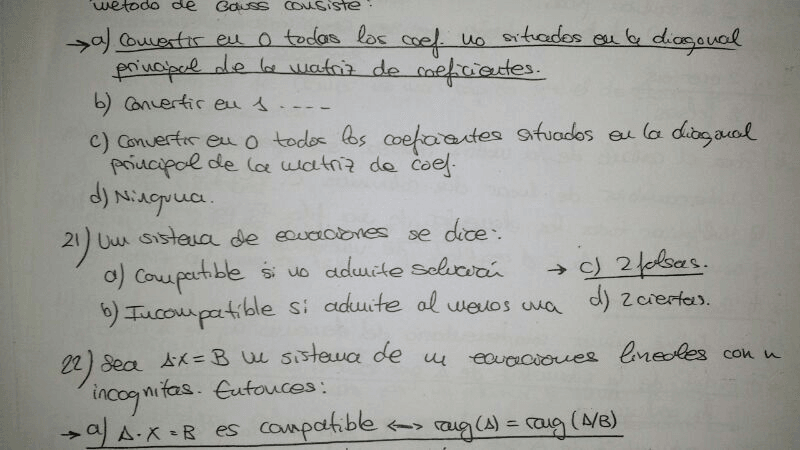 método de Gauss consiste:
→ a) Convertir en 0 todas los coef. no situados en la diagonal
principal de la matriz de coeficientes.
b) Convertir en 1 ----
c) Convertir en 0 todos los coeficientes situados en la diagonal
principal de la matriz de coef.
d) Ninguna.
21) Un sistema de ecuaciones se dice:
a) Compatible si no admite solución → c) 2 falsas.
b) Incompatible si admite al menos una d) 2 ciertas.
22) Sea A·X = B un sistema de m ecuaciones lineales con n
incognitas. Entonces:
→ a) A·X = B es compatible ⟷ rang (A) = rang (A/B)